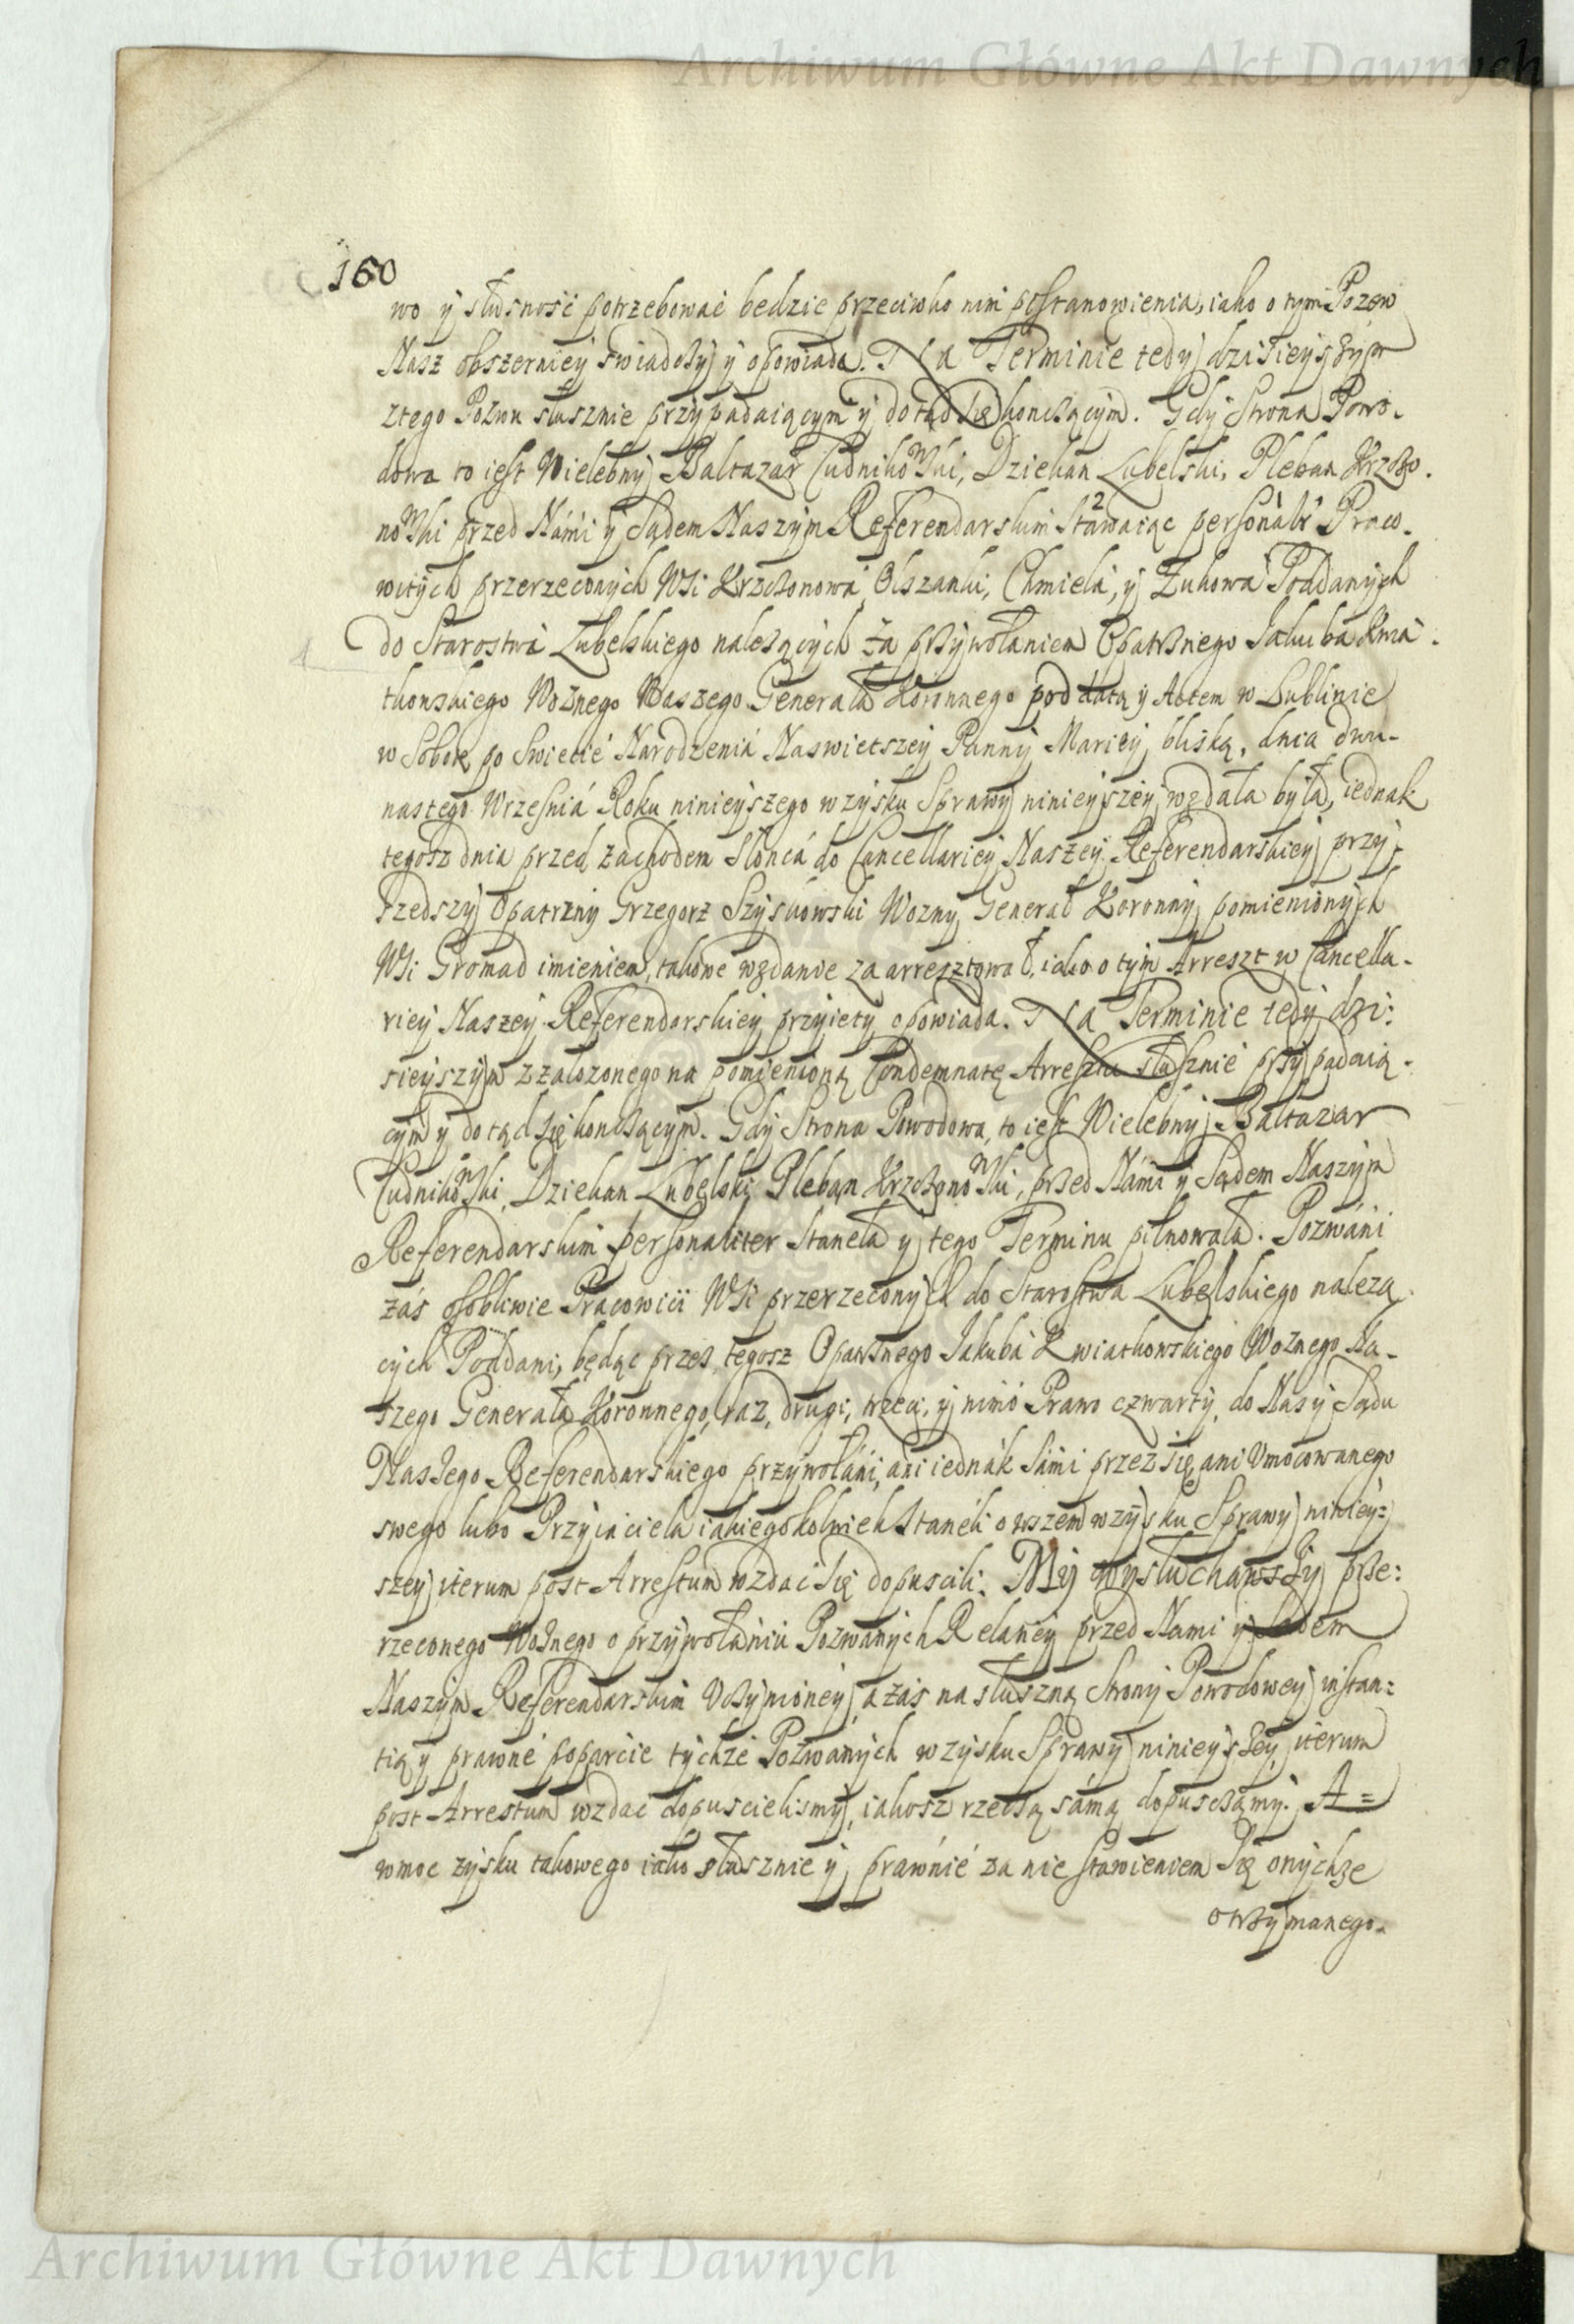 Archiwum Główne Akt Dawnych
160
wo y słusność potrzebować bedzie przeciwko nim postanowienia, iako o tym Pozew
Nasz obszerniey swiadczy y opowiada. Na Terminie tedy dzisieyszym
ztego Pozwu słusznie przypadaiącym y dotąd się konczącym. Gdy Strona Powo-
dowa to iest Wielebny Baltazar Cudnikowski, Dziekan Lubelski, Pleban Krzczo-
nowski przed Námi y Sądem Naszym Referendarskim Stawaiąc personalr Praco-
witych przerzeconych Wsi Krzczonowa, Olszanki, Chmiela, y Zukowa Poddanych
do Starostwa Lubelskiego należących za przywołaniem Opatrznego Jakuba Kwia-
tkowskiego Woznego Naszego Generała Koronnego pod datą y Actem w Lublinie
w Sobotę po Swiecie Narodzenia Naswietszey Panny Mariey bliską, dnia dwu-
nastego Wrzesniá Roku ninieyszego w zysku Sprawy ninieyszey wzdała była, iednak
tegosz dnia przed zachodem Słonca do Cancellariey Naszey Referendarskiey przy-
szedszy Opatrzny Grzegorz Szyskowski Wozny Generał Koronny pomienionych
Wsi Gromad imieniem, takowe wzdanie zaarresztował, iako o tym Arreszt w Cancella-
riey Naszey Referendarskiey przyięty opowiada. Na Terminie tedy dzi:
sieyszym z założonego na pomienioną Condemnatę Arresztu słusznie przypadaią-
cym y dotąd się konczącym. Gdy Strona Powodowa, to iest Wielebny Baltazar
Cudnikowski, Dziekan Lubelski Pleban Krzczonowski, przed Námi y Sądem Naszym
Referendarskim personaliter Staneła y tego Terminu pilnowała. Pozwáni
zaś osobliwie Pracowici Wsi przerzeconych do Starostwa Lubelskiego należą
cych Poddani, będąc przez tegosz Opatrznego Jakuba Kwiatkowskiego Woznego Na-
szego Generała Koronnego, raz, drugi, trzeci, y nimo Prawo czwarty, do Nas y Sądu
Naszego Referendarskiego przywołáni, ani iednák sámi przez się, ani Umocowanego
swego lubo Przyiaciela iakiegokolwiek Staneli owszem w zysku Sprawy niniey=
szey iterum post Arrestum wzdać się dopuscili. My wysłuchawszy prze:
rzeconego Woznego o przywołániu Pozwanych Relaciey przed Nami y Sądem
Naszym Referendarskim Uczynioney, a zaś na słuszną Strony Powodowey instan=
tią y prawne poparcie tychże Pozwanych w zysku Sprawy ninieyszey iterum
post Arrestum wzdać dopuscielismy, iakosz rzeczą sámą dopusczamy. A=
w moc zysku takowego iako słusznie y prawnie za nie stawieniem się onychże
otrzymanego.
Archiwum Główne Akt Dawnych